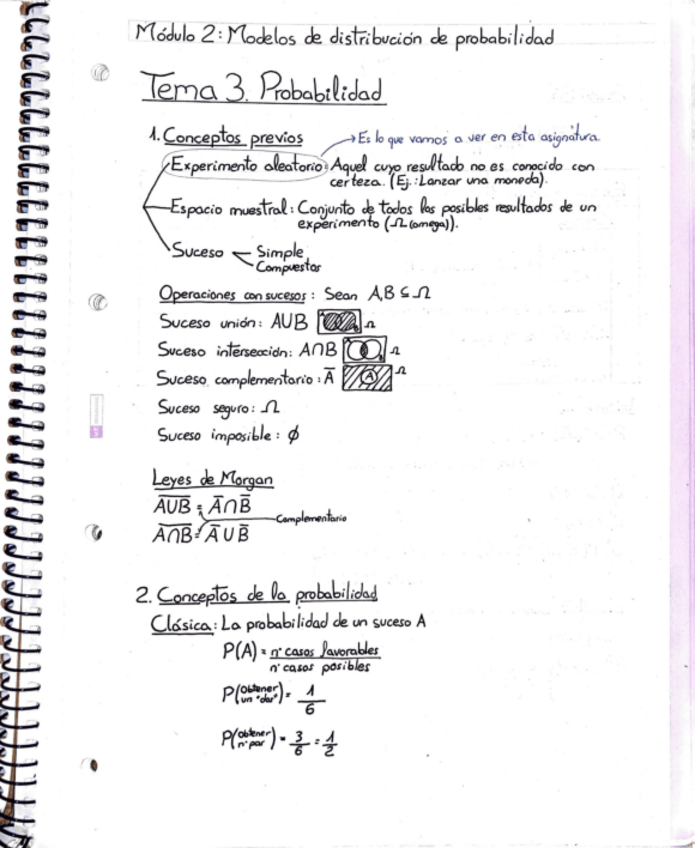 Módulo 2: Modelos de distribución de probabilidad
Tema 3. Probabilidad
1. Conceptos previos → Es lo que vamos a ver en esta asignatura
Experimento aleatorio: Aquel cuyo resultado no es conocido con
certeza. (Ej.: Lanzar una moneda).
Espacio muestral: Conjunto de todos los posibles resultados de un
experimento (Ω (omega)).
Suceso Simple
Compuestos
Operaciones con sucesos: Sean A,B ⊆ Ω
Suceso unión: A∪B Ω
Suceso intersección: A∩B Ω
Suceso complementario: A̅ A Ω
Suceso seguro: Ω
Suceso imposible: ϕ
Leyes de Morgan
A̅∪̅B̅ = A̅∩B̅
Complementario
A̅∩̅B̅ = A̅∪B̅
2. Conceptos de la probabilidad
Clásica: La probabilidad de un suceso A
P(A) = nº casos favorables
nº casos posibles
P(obtener un "dos") = 1/6
P(obtener nº par) = 3/6 = 1/2